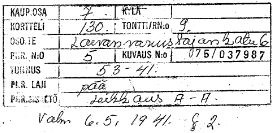 KAUP.OSA 7 K-LÄ
KORTTELI 130. TONTTI/RN:o 9.
OSOITE Laivanvarustajankatu 6
PIIR. N:o 5 KUVAUS N:o 075/037987
TUNNUS 53-41.
PIIR. LAJI pää
PIIR. SISÄLTÖ Leikkaus A-A.
Valm. 6.5.1941. § 2.